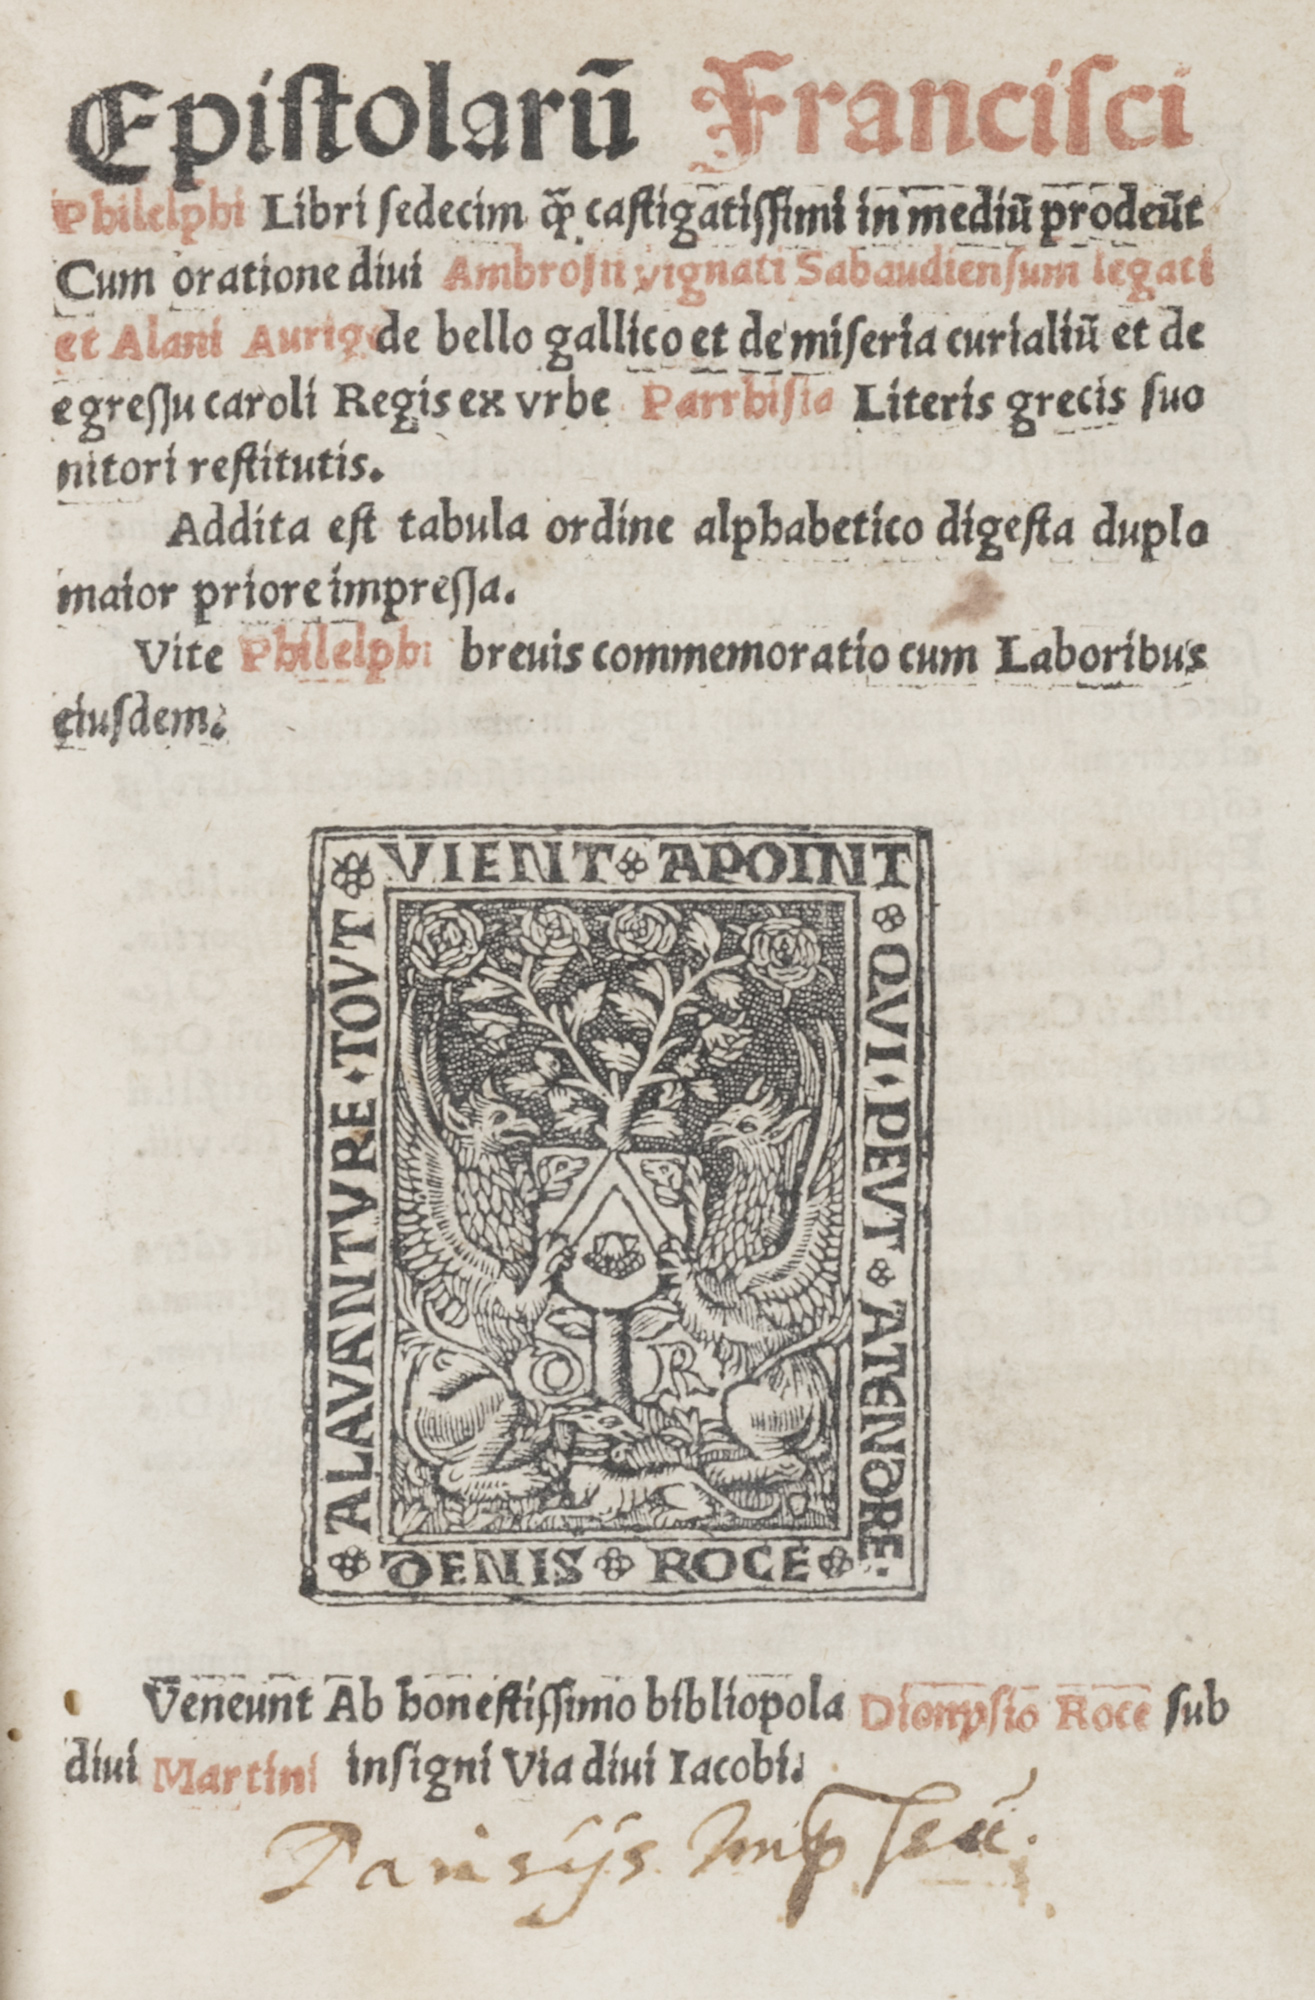 Epistolarũ Francisci
Philelphi Libri sedecim q̃ꝫ castigatissimi in mediũ prodeũt
Cum oratione diui Ambrosii vignati Sabaudiensum legati
et Alani Aurige de bello gallico et de miseria curialiũ et de
egressu caroli Regis ex vrbe Parrhisia Literis grecis suo
nitori restitutis.
Addita est tabula ordine alphabetico digesta duplo
maior priore impressa.
Vite Philelphi breuis commemoratio cum Laboribus
eiusdem.
ALAVANTVRE · TOVT
VIENT APOINT
QVI · PEVT ATENDRE ·
D R
DENIS ROCE
Veneunt Ab honestissimo bibliopola Dionysio Roce sub
diui Martini insigni Via diui Iacobi.
Parisijs Imp̲ssũ.